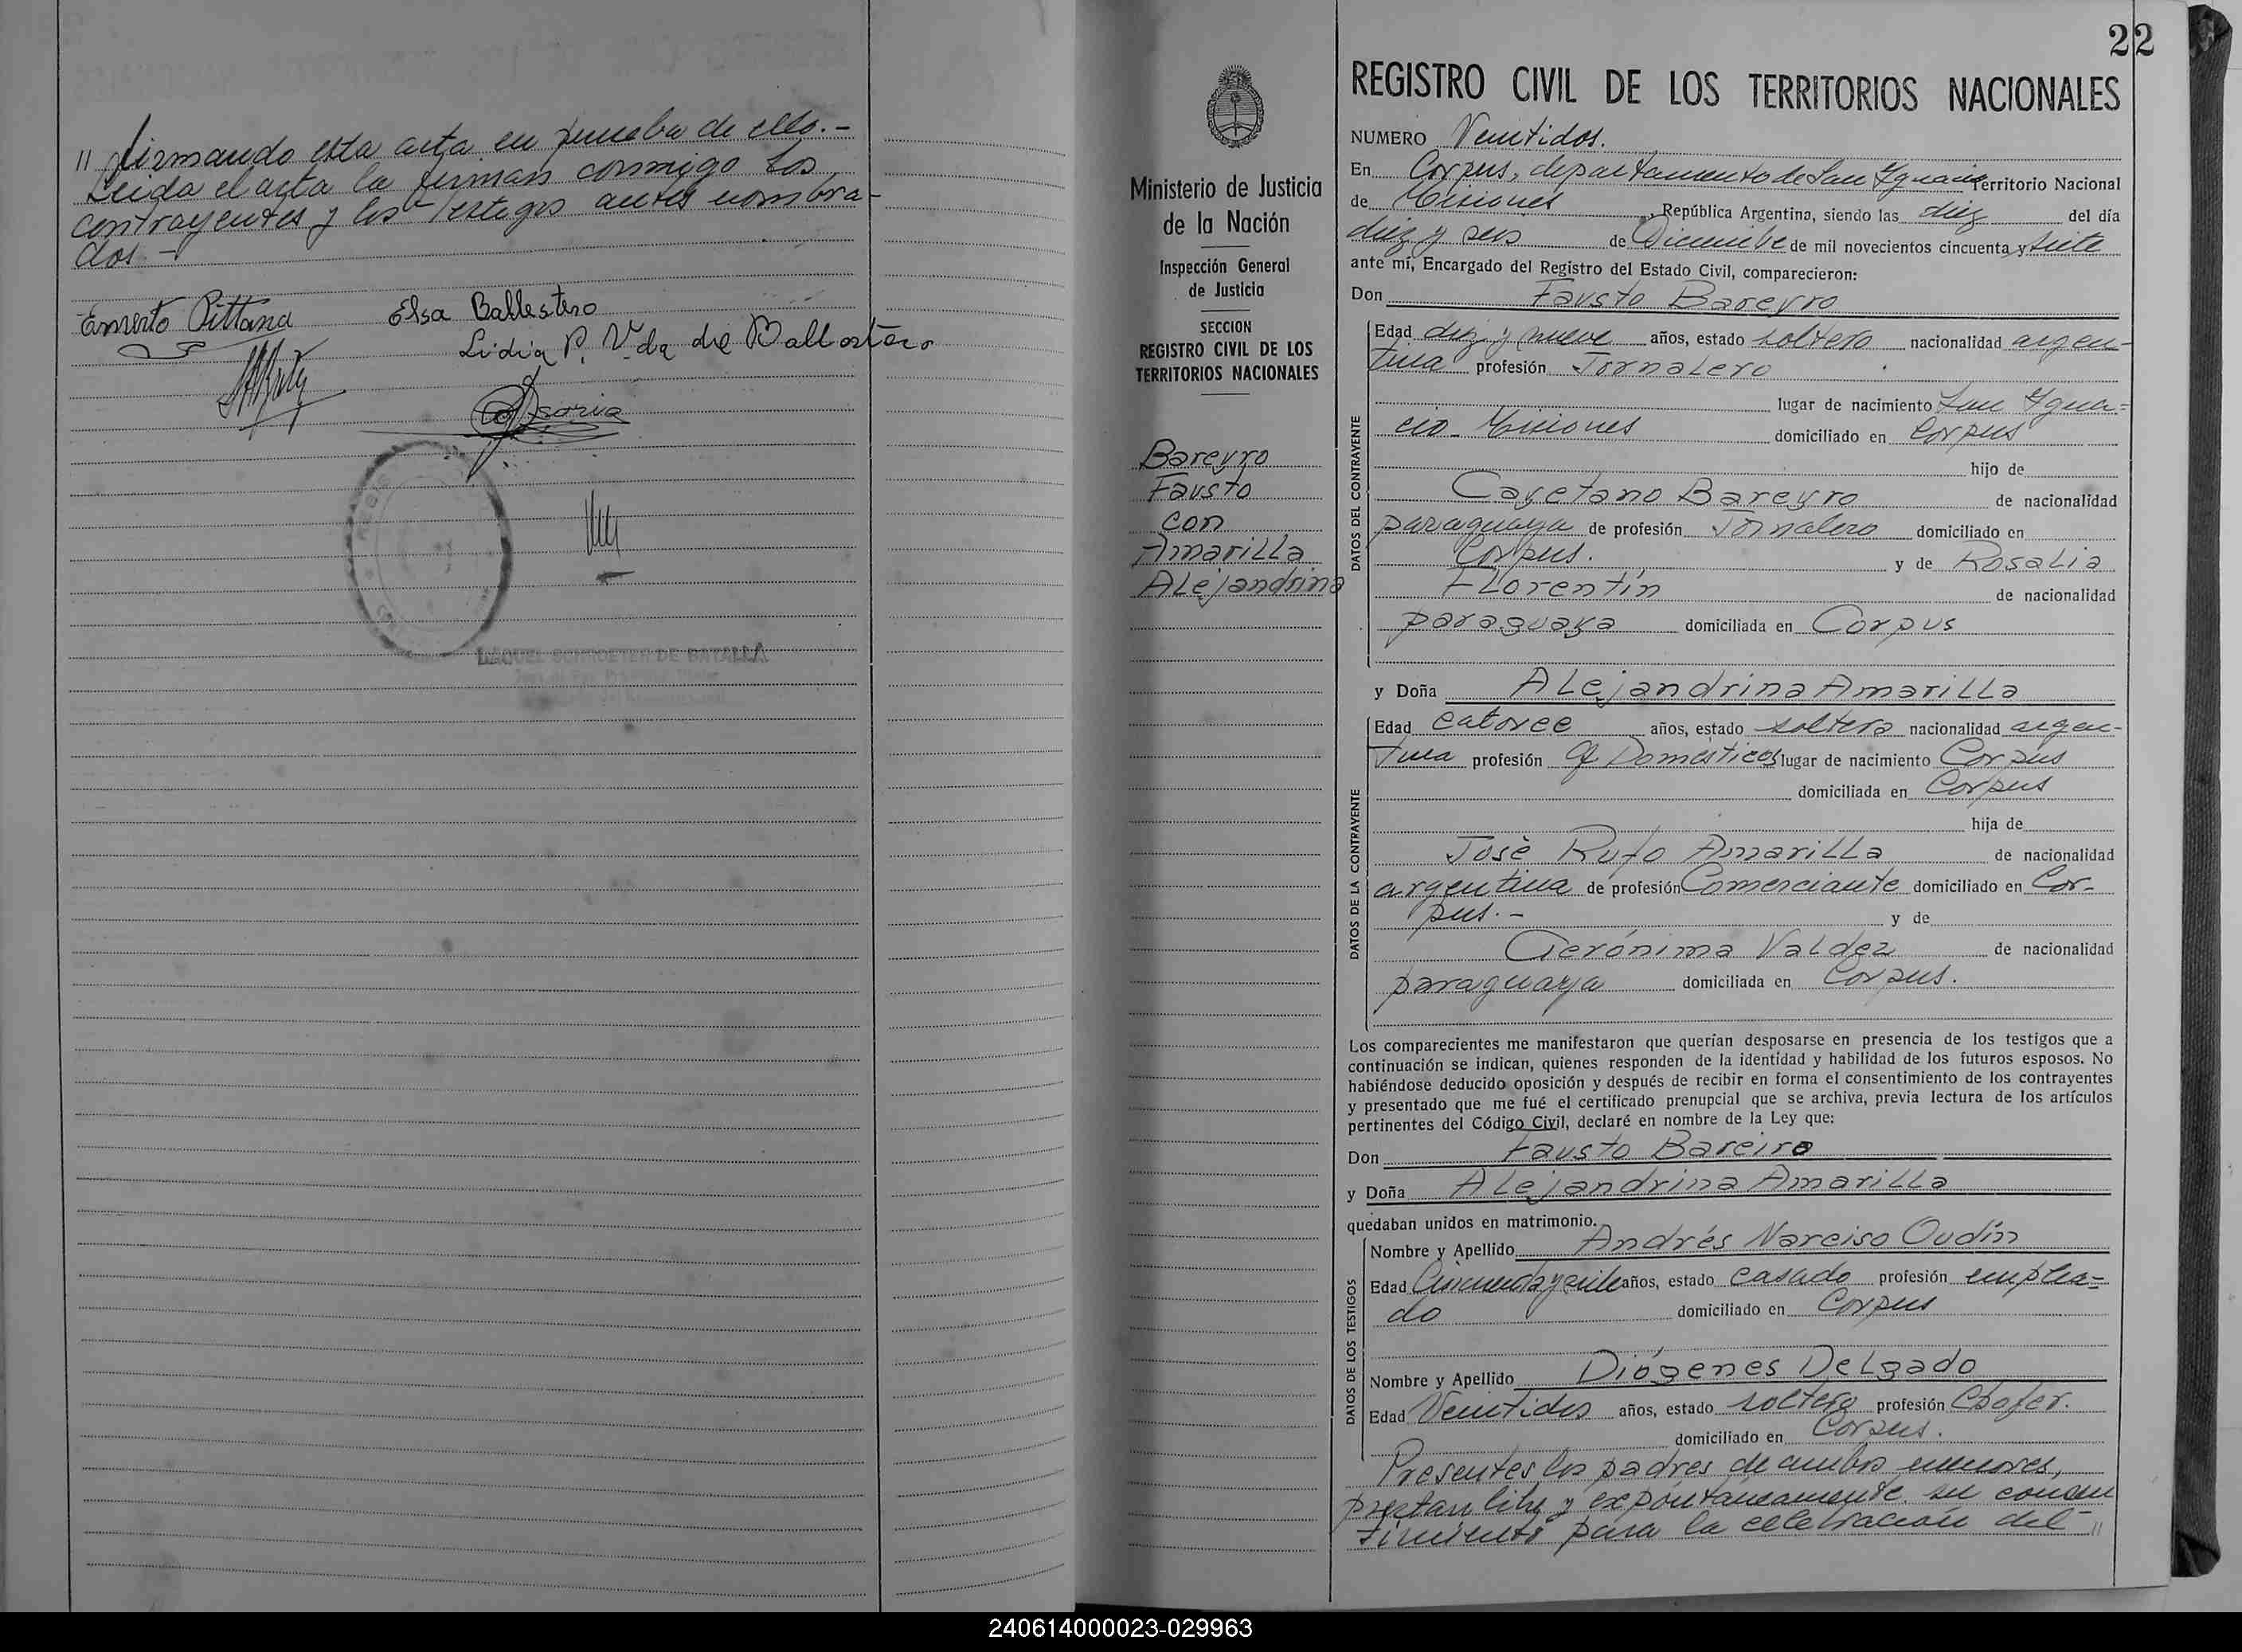 " firmando esta acta en prueba de ello.-
Leida el acta la firman conmigo los
contrayentes y los testigos antes nombra-
dos.-
Ernesto Pittana
Elsa Ballestero
Lidia P. Vda de Ballestero
RAQUEL SCHROETER DE BATALLA
22
REGISTRO CIVIL DE LOS TERRITORIOS NACIONALES
Ministerio de Justicia
de la Nación
Inspección General
de Justicia
SECCION
REGISTRO CIVIL DE LOS
TERRITORIOS NACIONALES
Bareyro
Fausto
con
Amarilla
Alejandrina
NUMERO Veintidos.
En Corpus, departamento de San Ignacio Territorio Nacional
de Misiones República Argentina, siendo las diez del día
diez y seis de Diciembre de mil novecientos cincuenta y siete
ante mí, Encargado del Registro del Estado Civil, comparecieron:
Don Fausto Bareyro
DATOS DEL CONTRAYENTE
Edad diez y nueve años, estado soltero nacionalidad argen-
tina profesión Jornalero
lugar de nacimiento San Igna-
cio - Misiones domiciliado en Corpus
hijo de
Cayetano Bareyro de nacionalidad
paraguaya de profesión Jornalero domiciliado en
Corpus. y de Rosalia
Florentín de nacionalidad
paraguaya domiciliada en Corpus
y Doña Alejandrina Amarilla
DATOS DE LA CONTRAYENTE
Edad catorce años, estado soltera nacionalidad argen-
tina profesión Q Domesticos lugar de nacimiento Corpus
domiciliada en Corpus
hija de
Josè Rufo Amarilla de nacionalidad
argentina de profesión Comerciante domiciliado en Cor-
pus.- y de
Gerónima Valdez de nacionalidad
paraguaya domiciliada en Corpus.
Los comparecientes me manifestaron que querían desposarse en presencia de los testigos que a
continuación se indican, quienes responden de la identidad y habilidad de los futuros esposos. No
habiéndose deducido oposición y después de recibir en forma el consentimiento de los contrayentes
y presentado que me fué el certificado prenupcial que se archiva, previa lectura de los artículos
pertinentes del Código Civil, declaré en nombre de la Ley que:
Don Fausto Bareiro
y Doña Alejandrina Amarilla
quedaban unidos en matrimonio.
DATOS DE LOS TESTIGOS
Nombre y Apellido Andrés Narciso Oudín
Edad años, estado casado profesión emplea-
do domiciliado en Corpus
Nombre y Apellido Diógenes Delgado
Edad Veintidos años, estado soltero profesión Chofer.
domiciliado en Corpus.
Presentes los padres de ambos menores,
prestan libre y expóntaneamente su consen
timiento para la celebración del "
240614000023-029963